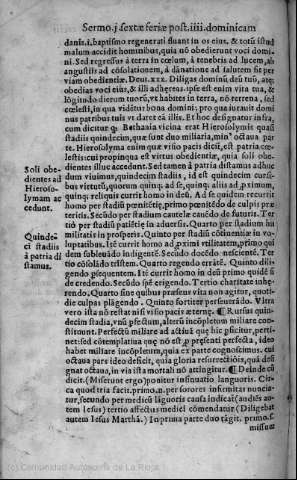 Sermo.j sextæ feriæ post.iiii.dominicam
danis.i.baptismo regenerati fiuant in oins eius, & totũ istud
malum accidit hominibus, quia nõ obedierunt voci domi
ni. Sed regressus à terra in cœlum, à tenebris ad lucem, ab
angustiis ad cõsolationem, à dãnatione ad salutem fit per
viam obedientiæ. Deut.xxx. Diligas dominũ deũ tuũ, atq;
obedias voci eius, & illi adhereas.ipse est enim vita tua, &
lõgitudo dierum tuorũ, vt habites in terra, nõ terrena, sed
cœlesti, in qua vidētur bona domini: pro qua iurauit domi
nus patribus tuis vt daret eã illis. Et hoc designatur infra,
cum dicitur Bethania vicina erat Hierosolymis quasi
stadiis quindecim, quæ sunt duo miliaria, octaua par
te. Hierosolyma enim quæ visio pacis dicit̃, est patria cœ-
lestis: cui propinqua est virtus obedientiæ, quia soli obe-
dientes illuc accedunt. Sed tamen à patria distamus adhuc
dum viuimus, quindecim stadiis, id est quindecim cursi-
bus virtutũ, quorum quinq; ad se, quinq; aliis ad proximum,
quinq; reliquis currit homo in deũ. Ad se quidem recurrit
homo per stadiũ pœnitẽtiæ, primo pœnitẽdo de culpis præ
teritis. Secũdo per stadium cautelæ cauẽdo de futuris. Ter
tiò per stadiũ patiẽtiæ in aduersis. Quarto per stadium hu
militatis in prosperis. Quinto per stadiũ continentiæ in vo-
luptatibus. Itẽ currit homo ad proximi vtilitatem, primo qui
dem subleuãdo indigentẽ. Secũdo docẽdo nescientẽ. Ter
tio cõsolãdo tristem. Quarto regendo errãtẽ. Quinto dili-
gendo persequentem. Itẽ currit homo in deũ primo quidẽ fi
de credendo. Secũdo spe erigendo. Tertio charitate inhę-
rendo. Quarto sine quibus præsens vita non agitur, quoti-
die culpas plãgendo. Quinto fortiter perseuerãdo. Vltra
vero ista nõ restat nisi visio pacis æternę. ¶ Rursus quin-
decim stadia, vnũ perfectum, alterũ incõpletum miliare con-
stituunt. Perfectũ miliare ad actiuã quę hic perficitur, perti-
net: sed cõtemplatiua quę nõ est in præsenti perfecta, ideo
habet miliare incõpletum, quia ex parte cognoscimus. cui
octaua pars ideo deficit, quia gloria resurrectiõis, quã desi-
gnat octaua, in via ista mortali nõ attingitur. ¶ Deinde cũ
dicit. (Miserunt ergo) ponitur insinuatio languoris. Cir-
ca quod tria facit. primo.n. per sorores infirmitas nuncia-
tur, secundo per medicũ lãguoris causa indicat̃ (audiẽs au-
tem Iesus) tertio affectus medici cõmendatur (Diligebat
autem Iesus Marthã.) In prima parte duo tãgit. primo.s.
missus
Soli obe-
dientes ad
Hieroso-
lymam ac
cedunt.
Quinde-
ci stadiis
à patria di
stamus.
(c) Comunidad Autónoma de La Rioja